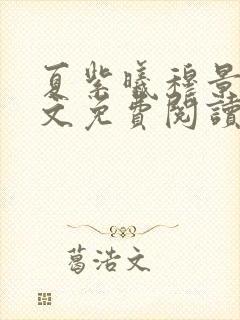 夏紫曦穆景
文免費閱讀
葛浩文